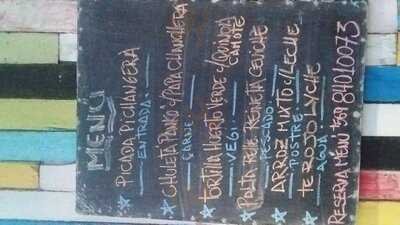 MENÚ
PICADA PICHANGERA
ENTRADA.
CHULETA PANKO C/PAPA CHANCHERA
CARNE.
TORTILLA HUERTO VERDE C/QUINOA
CAMOTE
VEGI.
PALTA REINETA CEVICHE
PESCADO.
ARROZ MIXTO C/LECHE
POSTRE.
TE ROJO LYCHE
AGUA
RESERVA MENU +569 84010073